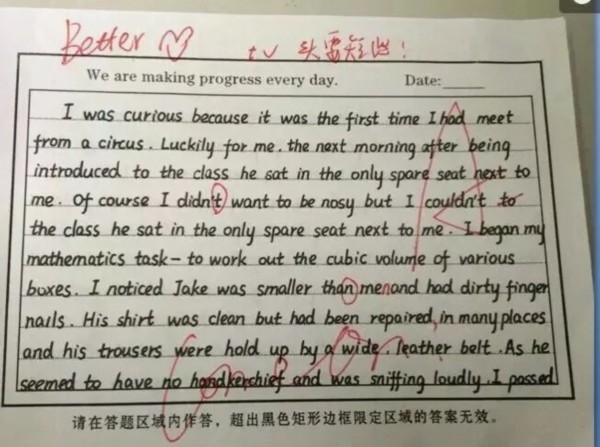 Better
tv 头要短些!
We are making progress every day. Date:
I was curious because it was the first time I had meet
from a circus. Luckily for me. the next morning after being
introduced to the class he sat in the only spare seat next to
me. Of course I didn't want to be nosy but I couldn't to
the class he sat in the only spare seat next to me. I began my
mathematics task - to work out the cubic volume of various
boxes. I noticed Jake was smaller than me and had dirty finger
nails. His shirt was clean but had been repaired, in many places
and his trousers were hold up by a wide, leather belt. As he
seemed to have no handkerchief and was sniffing loudly. I passed
请在答题区域内作答，超出黑色矩形边框限定区域的答案无效。